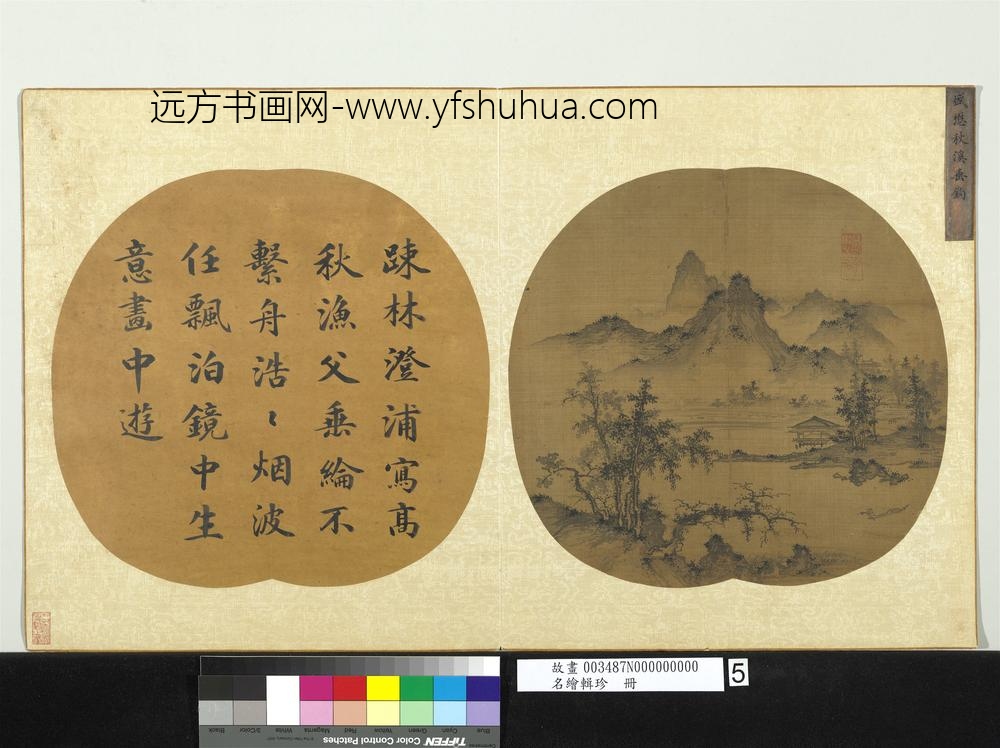 远方书画网-www.yfshuhua.com
盛懋秋溪垂釣
疎林澄浦寫高
秋漁父垂綸不
繫舟浩〻烟波
任飄泊鏡中生
意畫中遊
故畫 003487N000000000
名繪輯珍 冊
5
Black
3/Color
White
Magenta
Red
Yellow
Green
Cyan
Blue
TIFFEN Color Control Patches